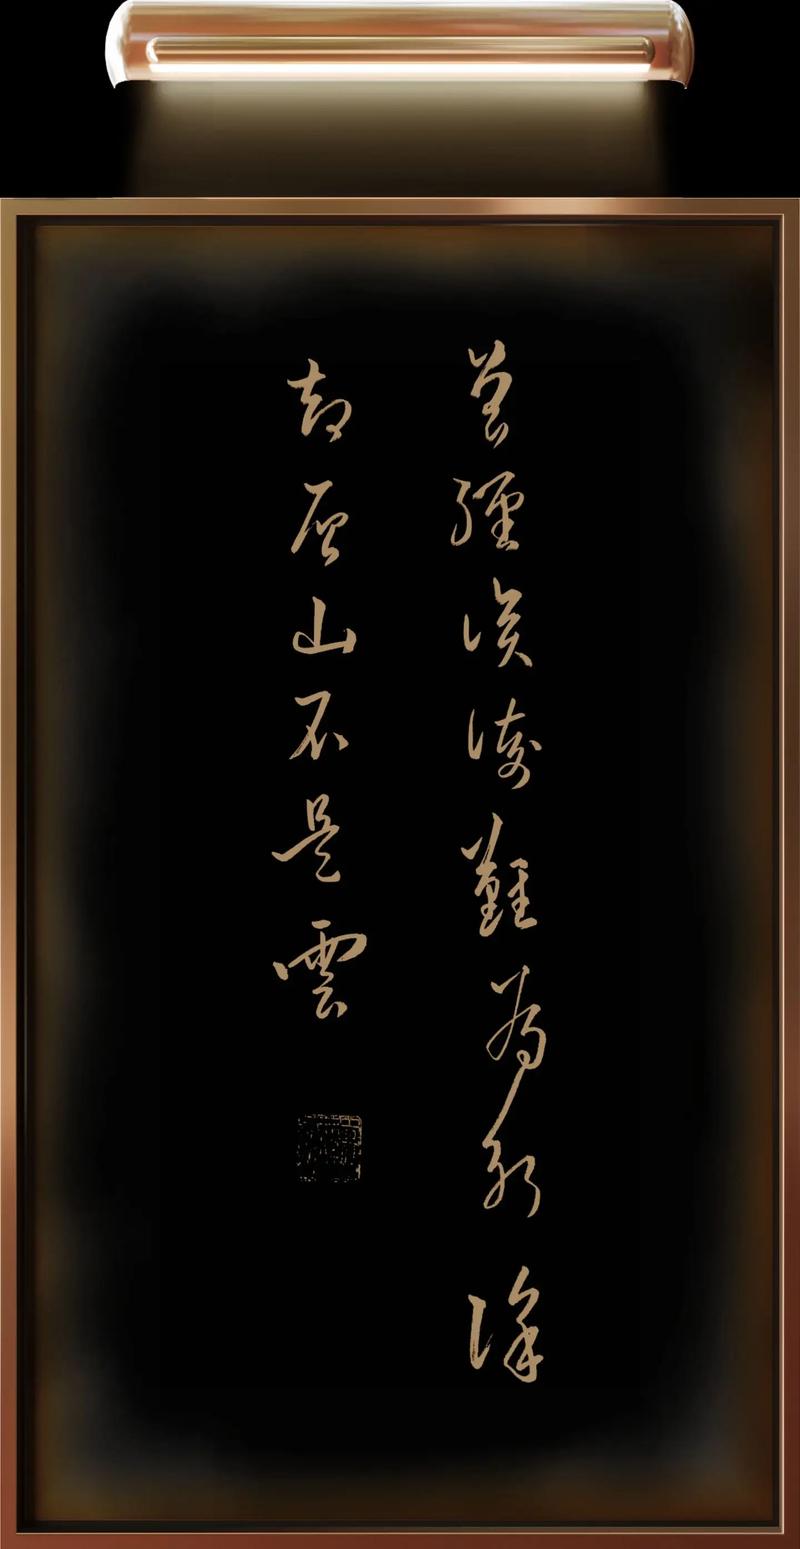 曾經滄海難為水除
却巫山不是雲